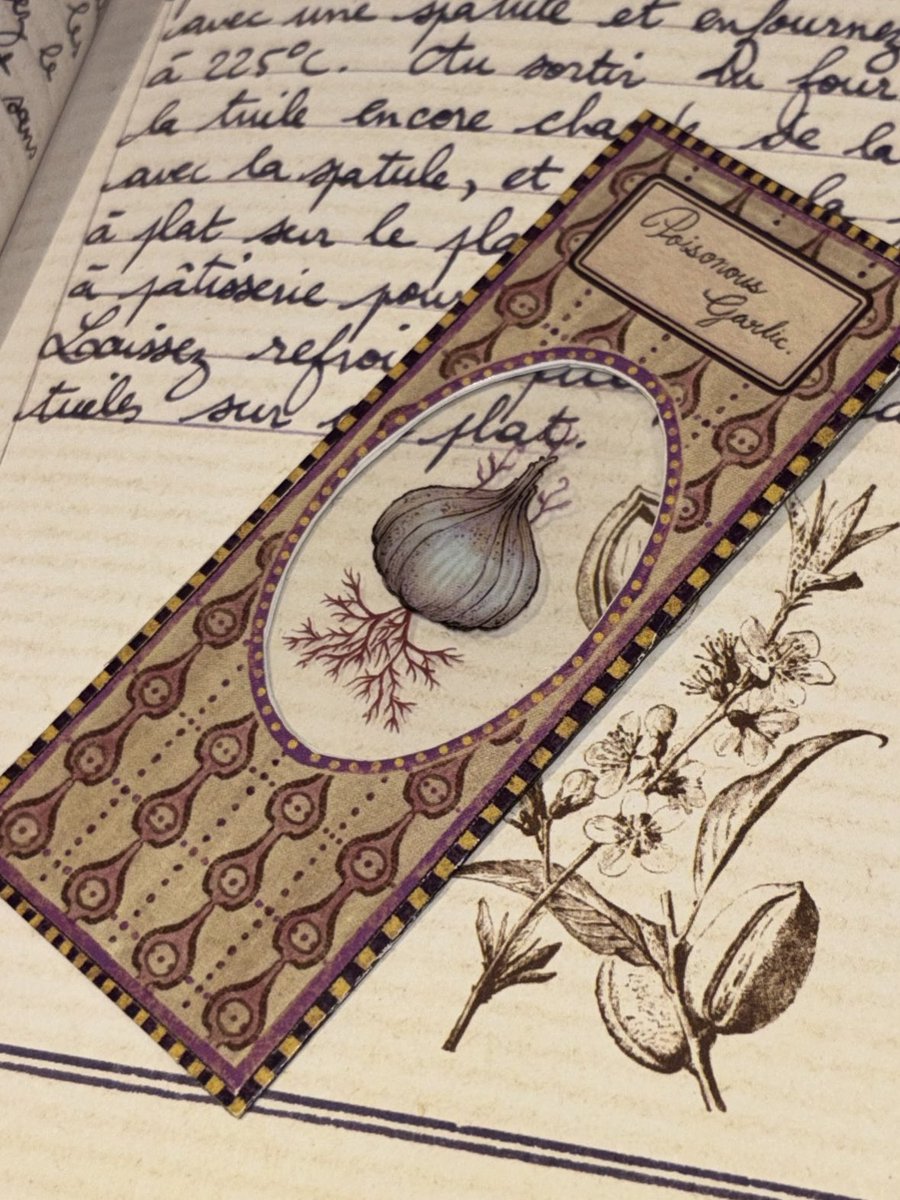 avec une spatule et enfournez
à 225°C. Au sortir Du four
la tuile encore de la
avec la spatule, et la
à plat sur le
à pâtisserie pour
Laissez
tuiles sur plat.
Poisonous
Garlic.